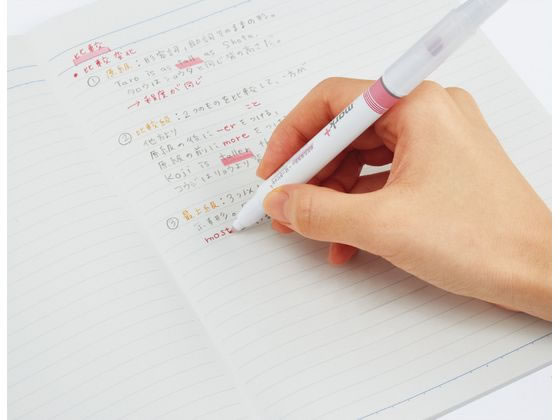 比較
• 比較変化
① 原級：形容詞、副詞そのままの形。
Taro is as tall as Shota.
タロウはショウタと同じ背の高さだ。
→ 程度が同じ
② 比較級：2つのものを比較して、一方が
他より こと
原級の後に -er をつける。
原級の前に more を
Koji is taller
コウジはリョウより
③ 最上級：3つ以
most
mark+